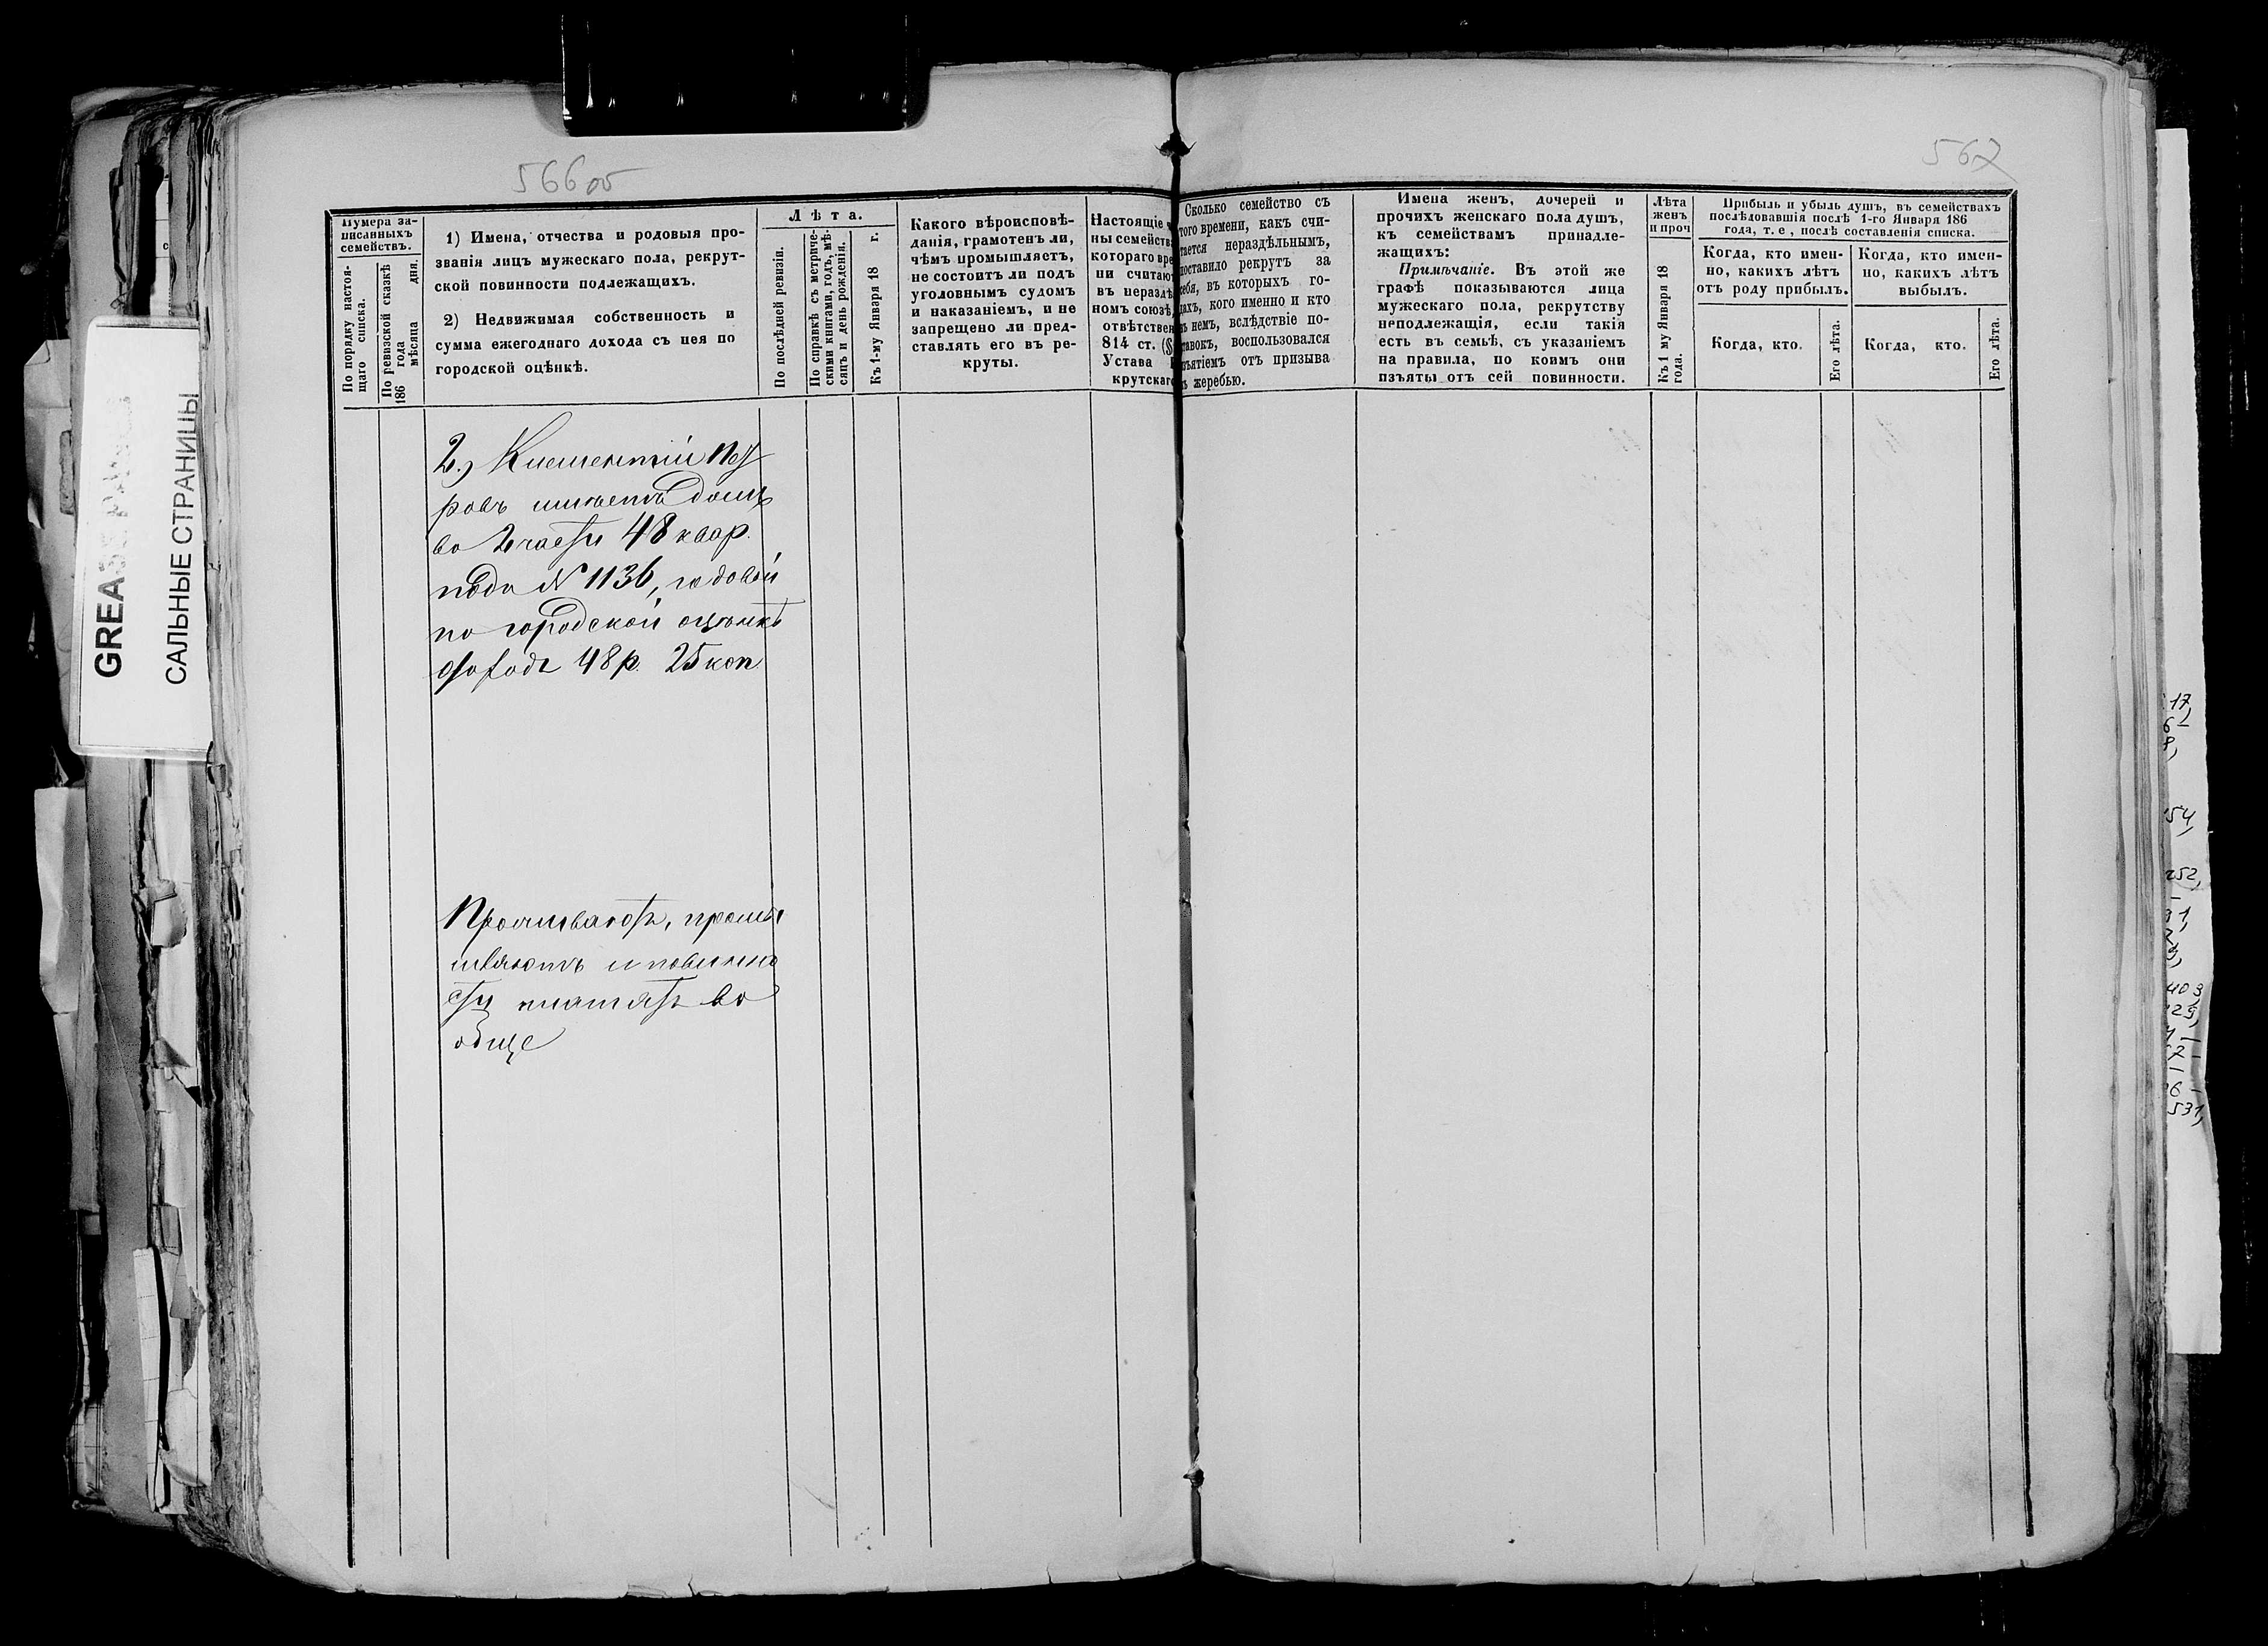 566об
567
Нумера за-
писанныхъ
семействъ.
По порядку настоя-
щаго списка.
По ревизской сказкѣ
186 года
мѣсяца дня.
1) Имена, отчества и родовыя про-
званія лицъ мужескаго пола, рекрут-
ской повинности подлежащихъ.
2) Недвижимая собственность и
сумма ежегоднаго дохода съ нея по
городской оцѣнкѣ.
Лѣта.
По послѣдней ревизіи.
По справкѣ съ метриче-
скими книгами, годъ, мѣ-
сяцъ и день рожденія.
Къ 1-му Января 18 г.
Какого вѣроисповѣ-
данія, грамотенъ ли,
чѣмъ промышляетъ,
не состоитъ ли подъ
уголовнымъ судомъ
и наказаніемъ, и не
запрещено ли пред-
ставлять его въ ре-
круты.
Настоящіе ч
ны семейств
котораго вре
ни считаю
въ нераздѣ
номъ союзѣ,
отвѣтствен
814 ст. (§
Устава
крутскаг
Сколько семейство съ
того времени, какъ счи-
тается нераздѣльнымъ,
поставило рекрутъ за
себя, въ которыхъ го-
дахъ, кого именно и кто
въ немъ, вслѣдствіе по-
ставокъ, воспользовался
изъятіемъ отъ призыва
къ жеребью.
Имена женъ, дочерей и
прочихъ женскаго пола душъ,
къ семействамъ принадле-
жащихъ:
Примѣчаніе. Въ этой же
графѣ показываются лица
мужескаго пола, рекрутству
неподлежащія, если такія
есть въ семьѣ, съ указаніемъ
на правила, по коимъ они
изъяты отъ сей повинности.
Лѣта
женъ
и проч
Къ 1 му Января 18
года.
Прибыль и убыль душъ, въ семействахъ
послѣдовавшія послѣ 1-го Января 186
года, т. е, послѣ составленія списка.
Когда, кто имен-
но, какихъ лѣтъ
отъ роду прибылъ.
Когда, кто имен-
но, какихъ лѣтъ
выбылъ.
Когда, кто.
Его лѣта.
Когда, кто.
Его лѣта.
2.) Клементій Пет
ровъ имѣетъ домъ
во 2 части 48 квар.
подъ № 1136, годовой
по городской оцѣнкѣ
доходъ 48 р. 25 коп
Проживаютъ, промы
шляютъ и повинно
сти платятъ во
обще
САЛЬНЫЕ СТРАНИЦЫ
17,
54,
252,
403,
531,